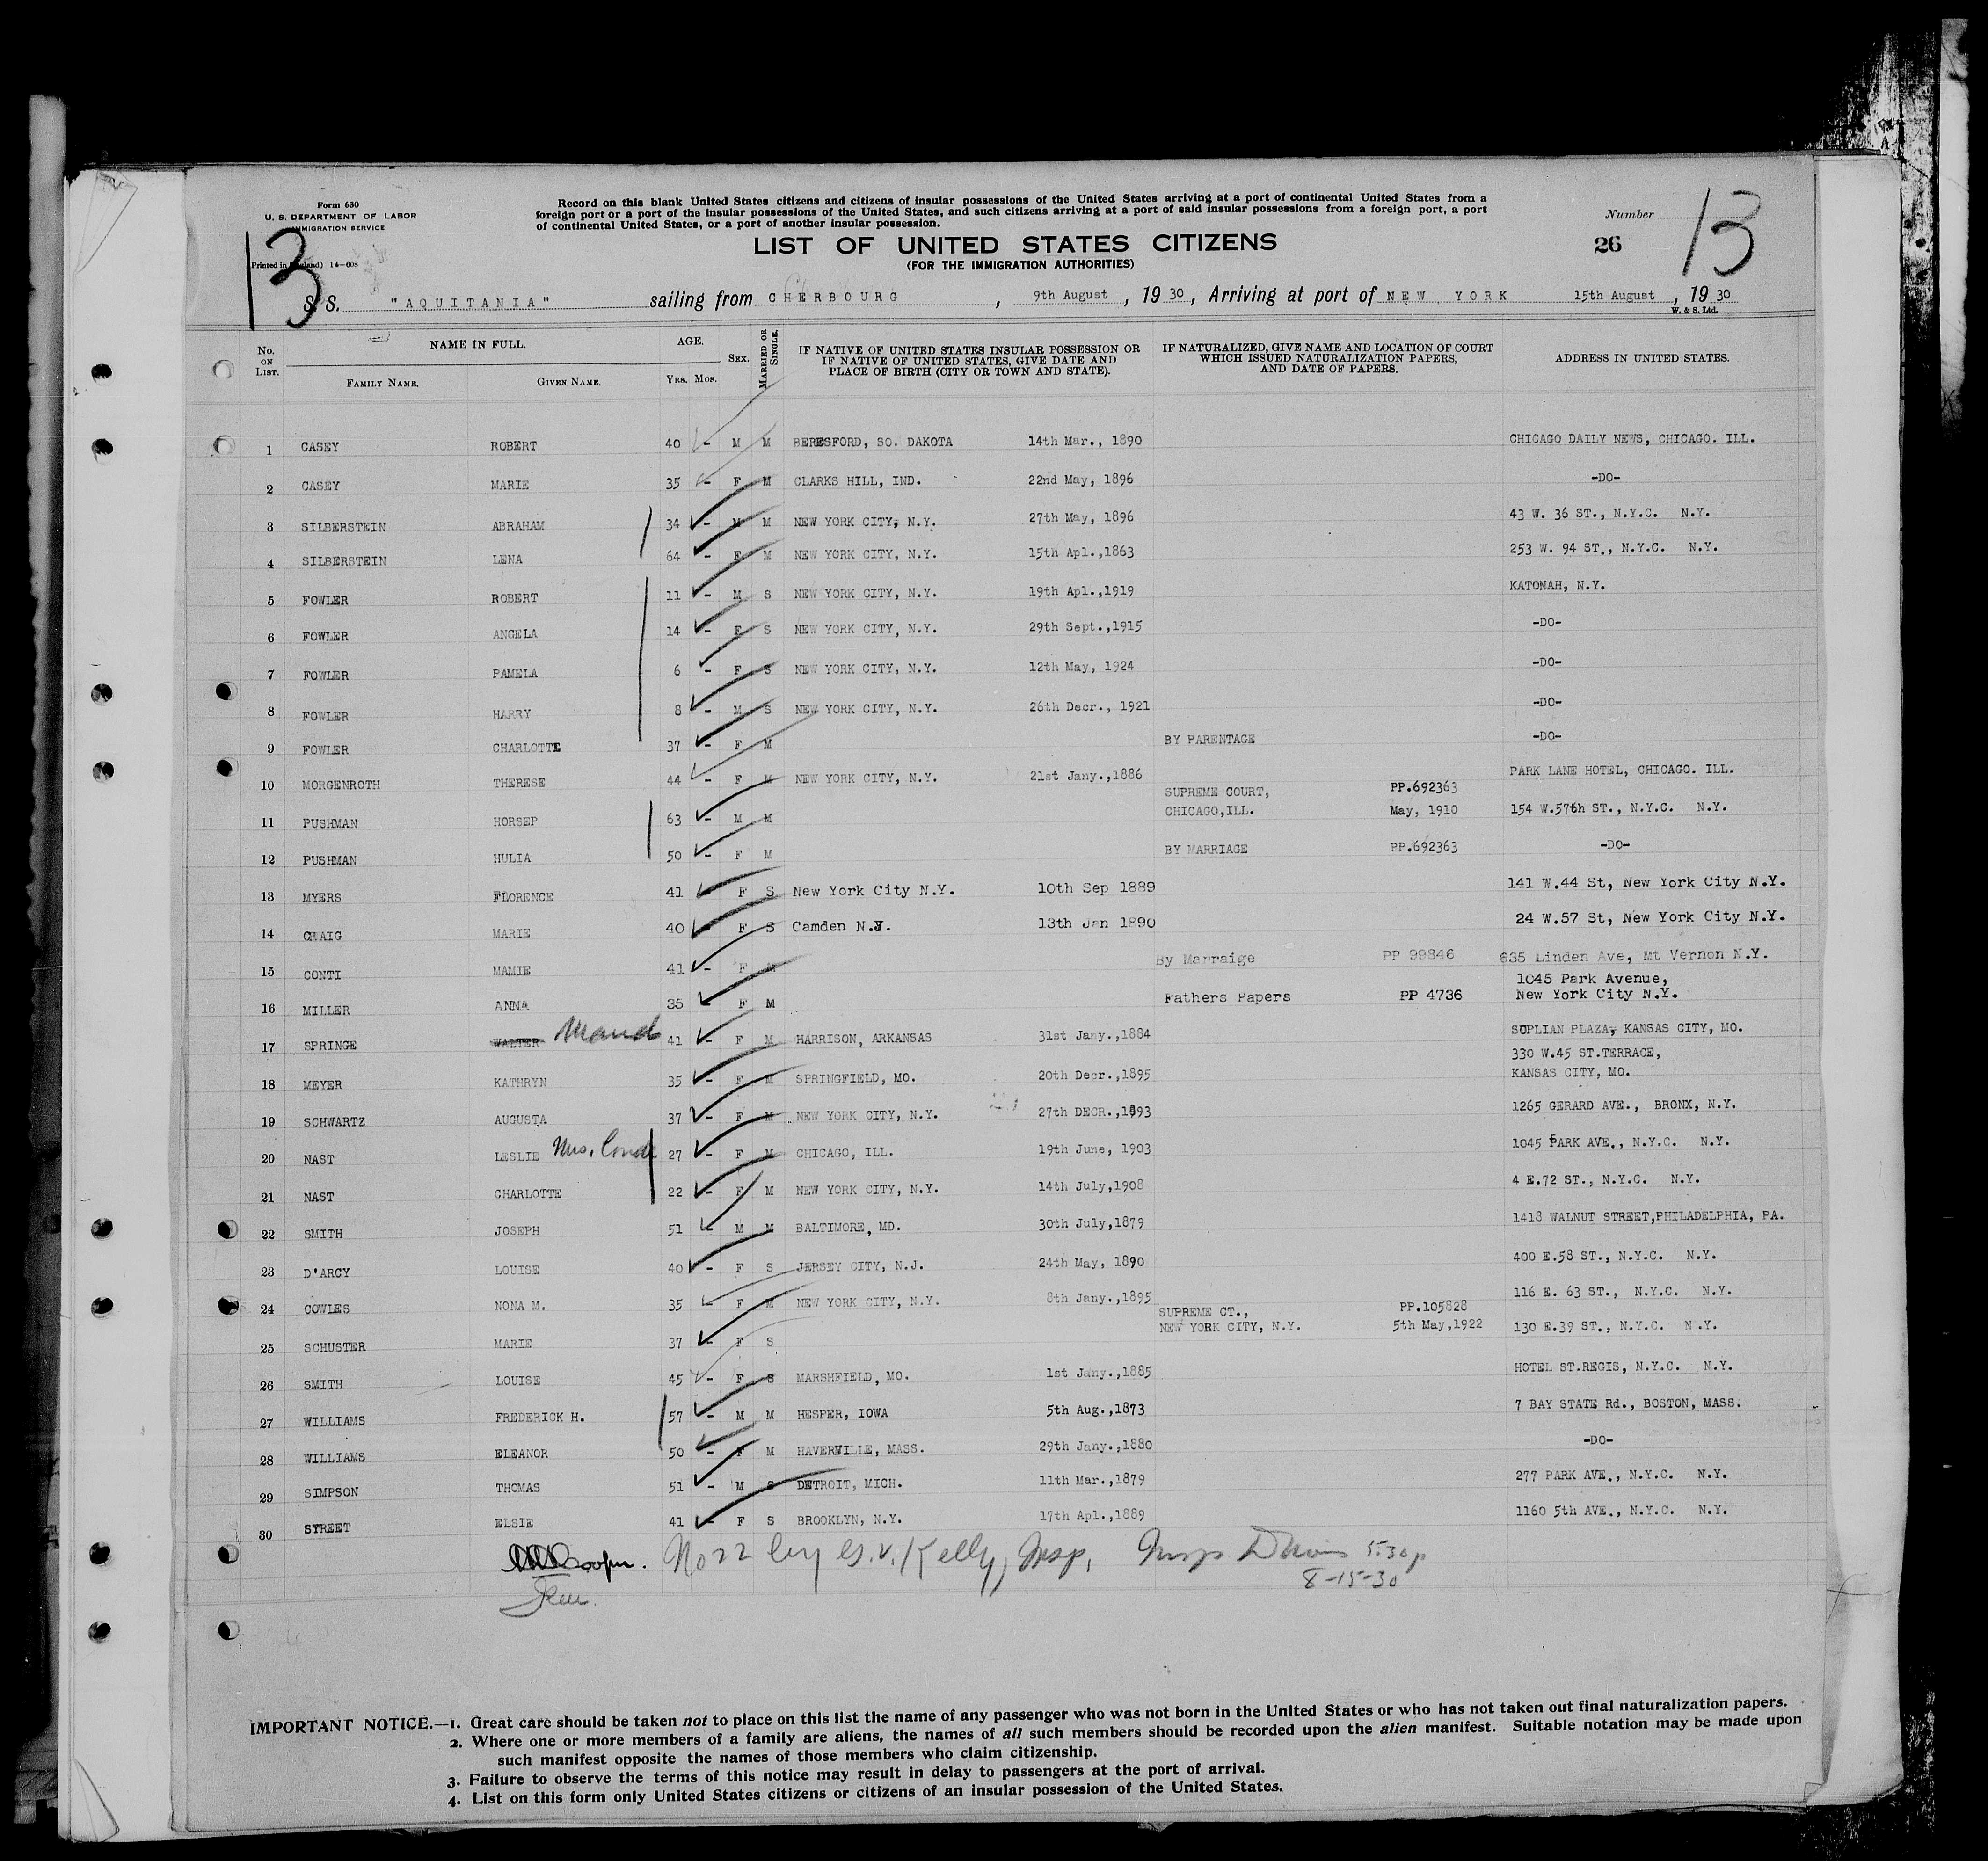 Form 630
U. S. DEPARTMENT OF LABOR
IMMIGRATION SERVICE
Printed in England) 14—608
13
Record on this blank United States citizens and citizens of insular possessions of the United States arriving at a port of continental United States from a
foreign port or a port of the insular possessions of the United States, and such citizens arriving at a port of said insular possessions from a foreign port, a port
of continental United States, or a port of another insular possession.
LIST OF UNITED STATES CITIZENS
(FOR THE IMMIGRATION AUTHORITIES)
Number
26
13
S.S. "AQUITANIA" sailing from CHERBOURG, 9th August, 1930, Arriving at port of NEW YORK 15th August, 1930
W. & S. Ltd.
No. ON LIST. NAME IN FULL. FAMILY NAME. GIVEN NAME. AGE. YRS. MOS. SEX. MARRIED OR SINGLE. IF NATIVE OF UNITED STATES INSULAR POSSESSION OR IF NATIVE OF UNITED STATES, GIVE DATE AND PLACE OF BIRTH (CITY OR TOWN AND STATE). IF NATURALIZED, GIVE NAME AND LOCATION OF COURT WHICH ISSUED NATURALIZATION PAPERS, AND DATE OF PAPERS. ADDRESS IN UNITED STATES.
1 CASEY ROBERT 40 - M M BERESFORD, SO. DAKOTA 14th Mar., 1890 CHICAGO DAILY NEWS, CHICAGO. ILL.
2 CASEY MARIE 35 - F M CLARKS HILL, IND. 22nd May, 1896 -DO-
3 SILBERSTEIN ABRAHAM 34 - M M NEW YORK CITY, N.Y. 27th May, 1896 43 W. 36 ST., N.Y.C. N.Y.
4 SILBERSTEIN LENA 64 - F M NEW YORK CITY, N.Y. 15th Apl.,1863 253 W. 94 ST., N.Y.C. N.Y.
5 FOWLER ROBERT 11 - M S NEW YORK CITY, N.Y. 19th Apl.,1919 KATONAH, N.Y.
6 FOWLER ANGELA 14 - F S NEW YORK CITY, N.Y. 29th Sept.,1915 -DO-
7 FOWLER PAMELA 6 - F S NEW YORK CITY, N.Y. 12th May, 1924 -DO-
8 FOWLER HARRY 8 - M S NEW YORK CITY, N.Y. 26th Decr., 1921 -DO-
9 FOWLER CHARLOTTE 37 - F M BY PARENTAGE -DO-
10 MORGENROTH THERESE 44 - F M NEW YORK CITY, N.Y. 21st Jany.,1886 PARK LANE HOTEL, CHICAGO. ILL.
SUPREME COURT, PP.692363
11 PUSHMAN HORSEP 63 - M M CHICAGO,ILL. May, 1910 154 W.57th ST., N.Y.C. N.Y.
12 PUSHMAN HULIA 50 - F M BY MARRIAGE PP.692363 -DO-
13 MYERS FLORENCE 41 F S New York City N.Y. 10th Sep 1889 141 W.44 St, New York City N.Y.
14 CRAIG MARIE 40 - F S Camden N.J. 13th Jan 1890 24 W.57 St, New York City N.Y.
15 CONTI MAMIE 41 - F M By Marraige PP 99846 635 Linden Ave, Mt Vernon N.Y.
1045 Park Avenue,
16 MILLER ANNA 35 - F M Fathers Papers PP 4736 New York City N.Y.
17 SPRINGE WALTER Maud 41 - F M HARRISON, ARKANSAS 31st Jany.,1884 SUPLIAN PLAZA, KANSAS CITY, MO.
330 W.45 ST.TERRACE,
18 MEYER KATHRYN 35 - F M SPRINGFIELD, MO. 20th Decr.,1895 KANSAS CITY, MO.
19 SCHWARTZ AUGUSTA 37 - F M NEW YORK CITY, N.Y. 27th DECR.,1893 1265 GERARD AVE., BRONX, N.Y.
20 NAST LESLIE Mrs. Condé 27 - F M CHICAGO, ILL. 19th June, 1903 1045 PARK AVE., N.Y.C. N.Y.
21 NAST CHARLOTTE 22 - F M NEW YORK CITY, N.Y. 14th July,1908 4 E.72 ST., N.Y.C. N.Y.
22 SMITH JOSEPH 51 - M M BALTIMORE, MD. 30th July,1879 1418 WALNUT STREET,PHILADELPHIA, PA.
23 D'ARCY LOUISE 40 - F S JERSEY CITY, N.J. 24th May, 1890 400 E.58 ST., N.Y.C. N.Y.
24 COWLES NONA M. 35 - F M NEW YORK CITY, N.Y. 8th Jany.,1895 116 E. 63 ST., N.Y.C. N.Y.
SUPREME CT., PP.105828
25 SCHUSTER MARIE 37 - F S NEW YORK CITY, N.Y. 5th May,1922 130 E.39 ST., N.Y.C. N.Y.
26 SMITH LOUISE 45 - F S MARSHFIELD, MO. 1st Jany.,1885 HOTEL ST.REGIS, N.Y.C. N.Y.
27 WILLIAMS FREDERICK H. 57 - M M HESPER, IOWA 5th Aug.,1873 7 BAY STATE Rd., BOSTON, MASS.
28 WILLIAMS ELEANOR 50 - F M HAVERVILLE, MASS. 29th Jany.,1880 -DO-
29 SIMPSON THOMAS 51 - M S DETROIT, MICH. 11th Mar.,1879 277 PARK AVE., N.Y.C. N.Y.
30 STREET ELSIE 41 - F S BROOKLYN, N.Y. 17th Apl.,1889 1160 5th AVE., N.Y.C. N.Y.
Cooper. No 22 by G.V. Kelly, Insp. Insp Davis 5:30 p
8-15-30
IMPORTANT NOTICE.—1. Great care should be taken not to place on this list the name of any passenger who was not born in the United States or who has not taken out final naturalization papers.
2. Where one or more members of a family are aliens, the names of all such members should be recorded upon the alien manifest. Suitable notation may be made upon
such manifest opposite the names of those members who claim citizenship.
3. Failure to observe the terms of this notice may result in delay to passengers at the port of arrival.
4. List on this form only United States citizens or citizens of an insular possession of the United States.